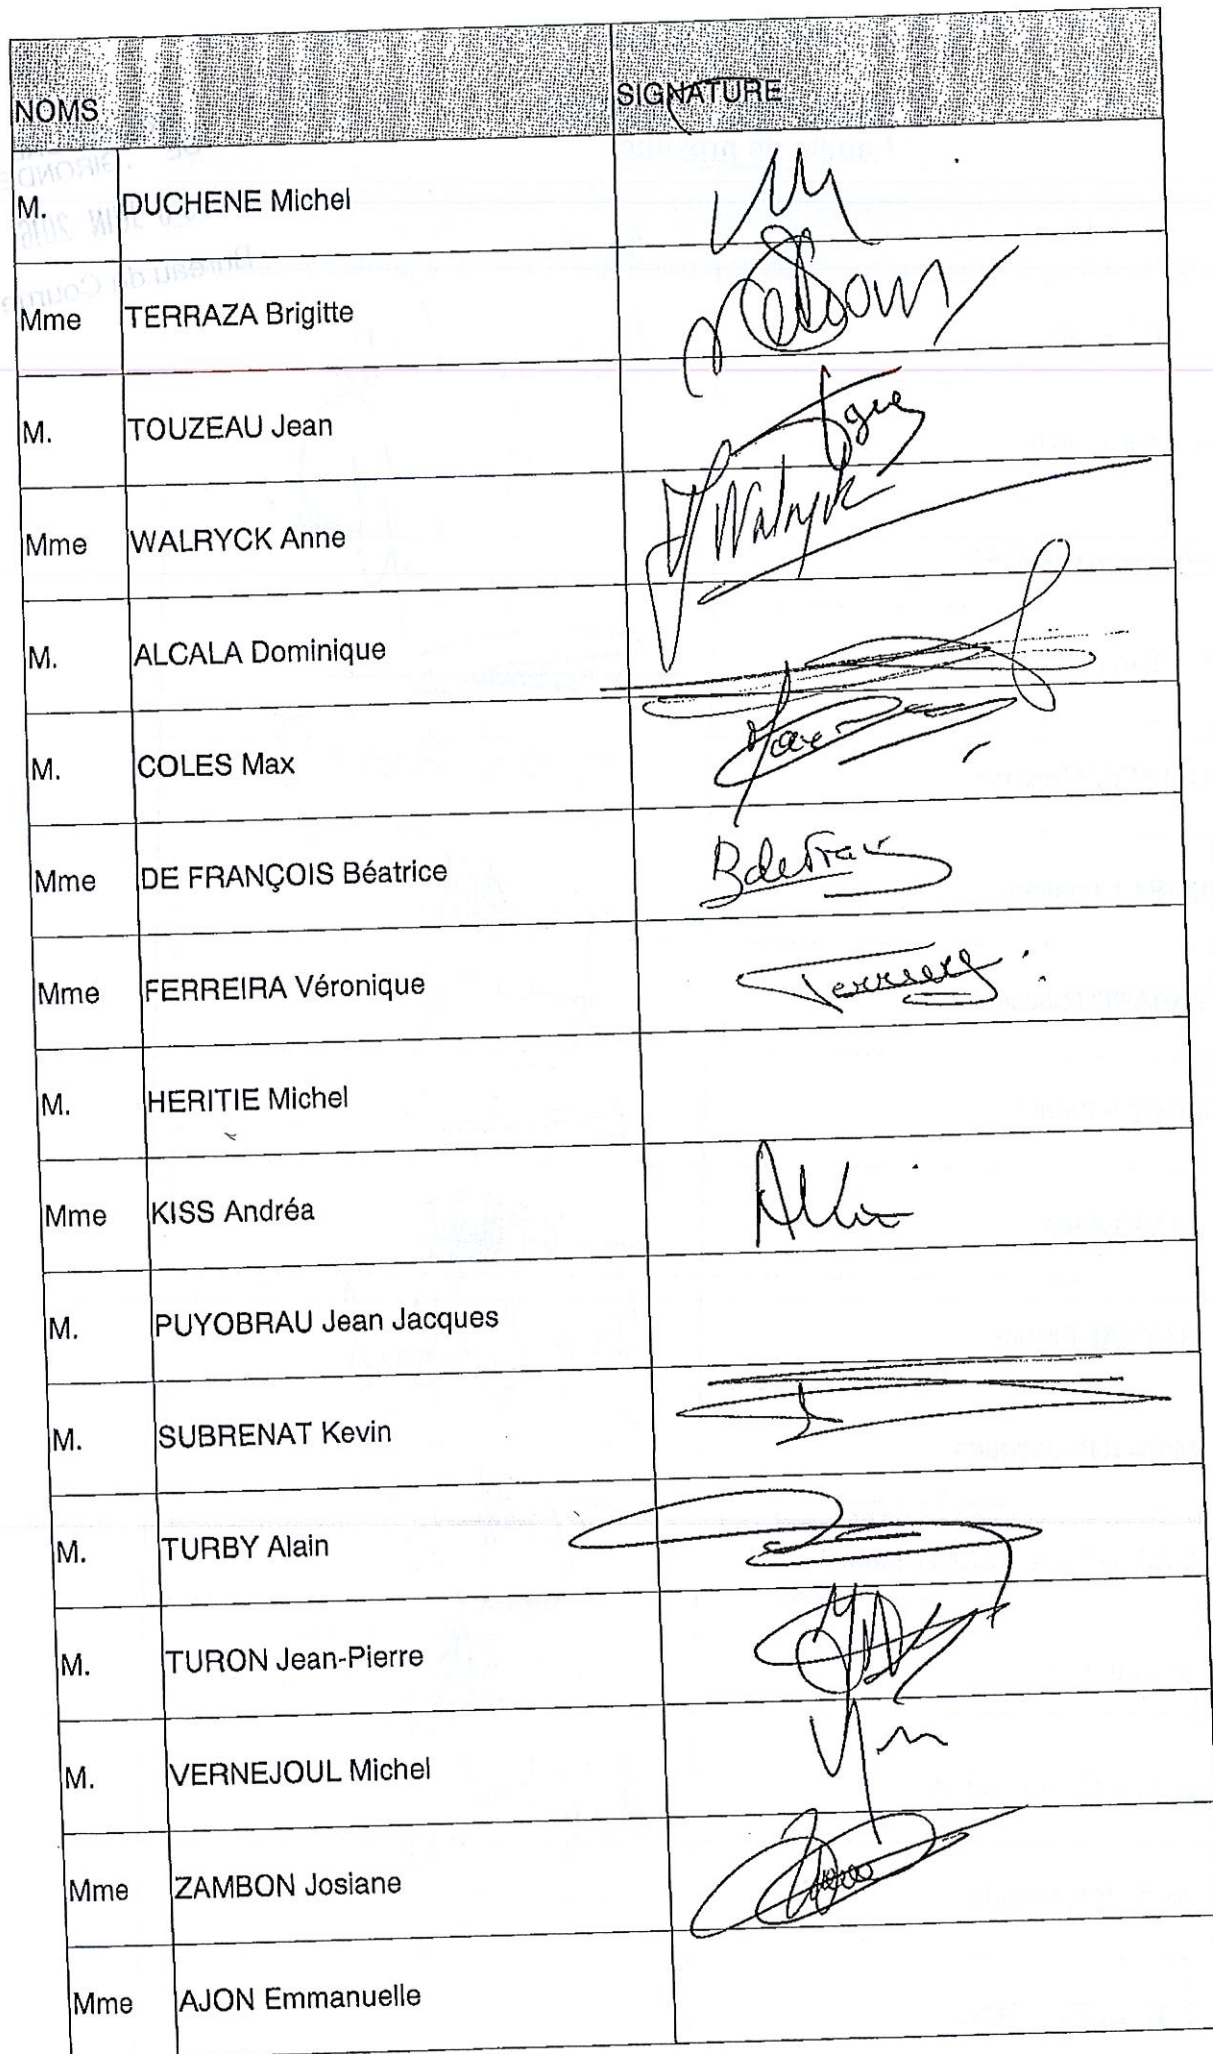 NOMS SIGNATURE
M. DUCHENE Michel
Mme TERRAZA Brigitte
M. TOUZEAU Jean
Mme WALRYCK Anne Walryck
M. ALCALA Dominique
M. COLES Max
Mme DE FRANÇOIS Béatrice
Mme FERREIRA Véronique
M. HERITIE Michel
Mme KISS Andréa
M. PUYOBRAU Jean Jacques
M. SUBRENAT Kevin
M. TURBY Alain
M. TURON Jean-Pierre
M. VERNEJOUL Michel
Mme ZAMBON Josiane
Mme AJON Emmanuelle